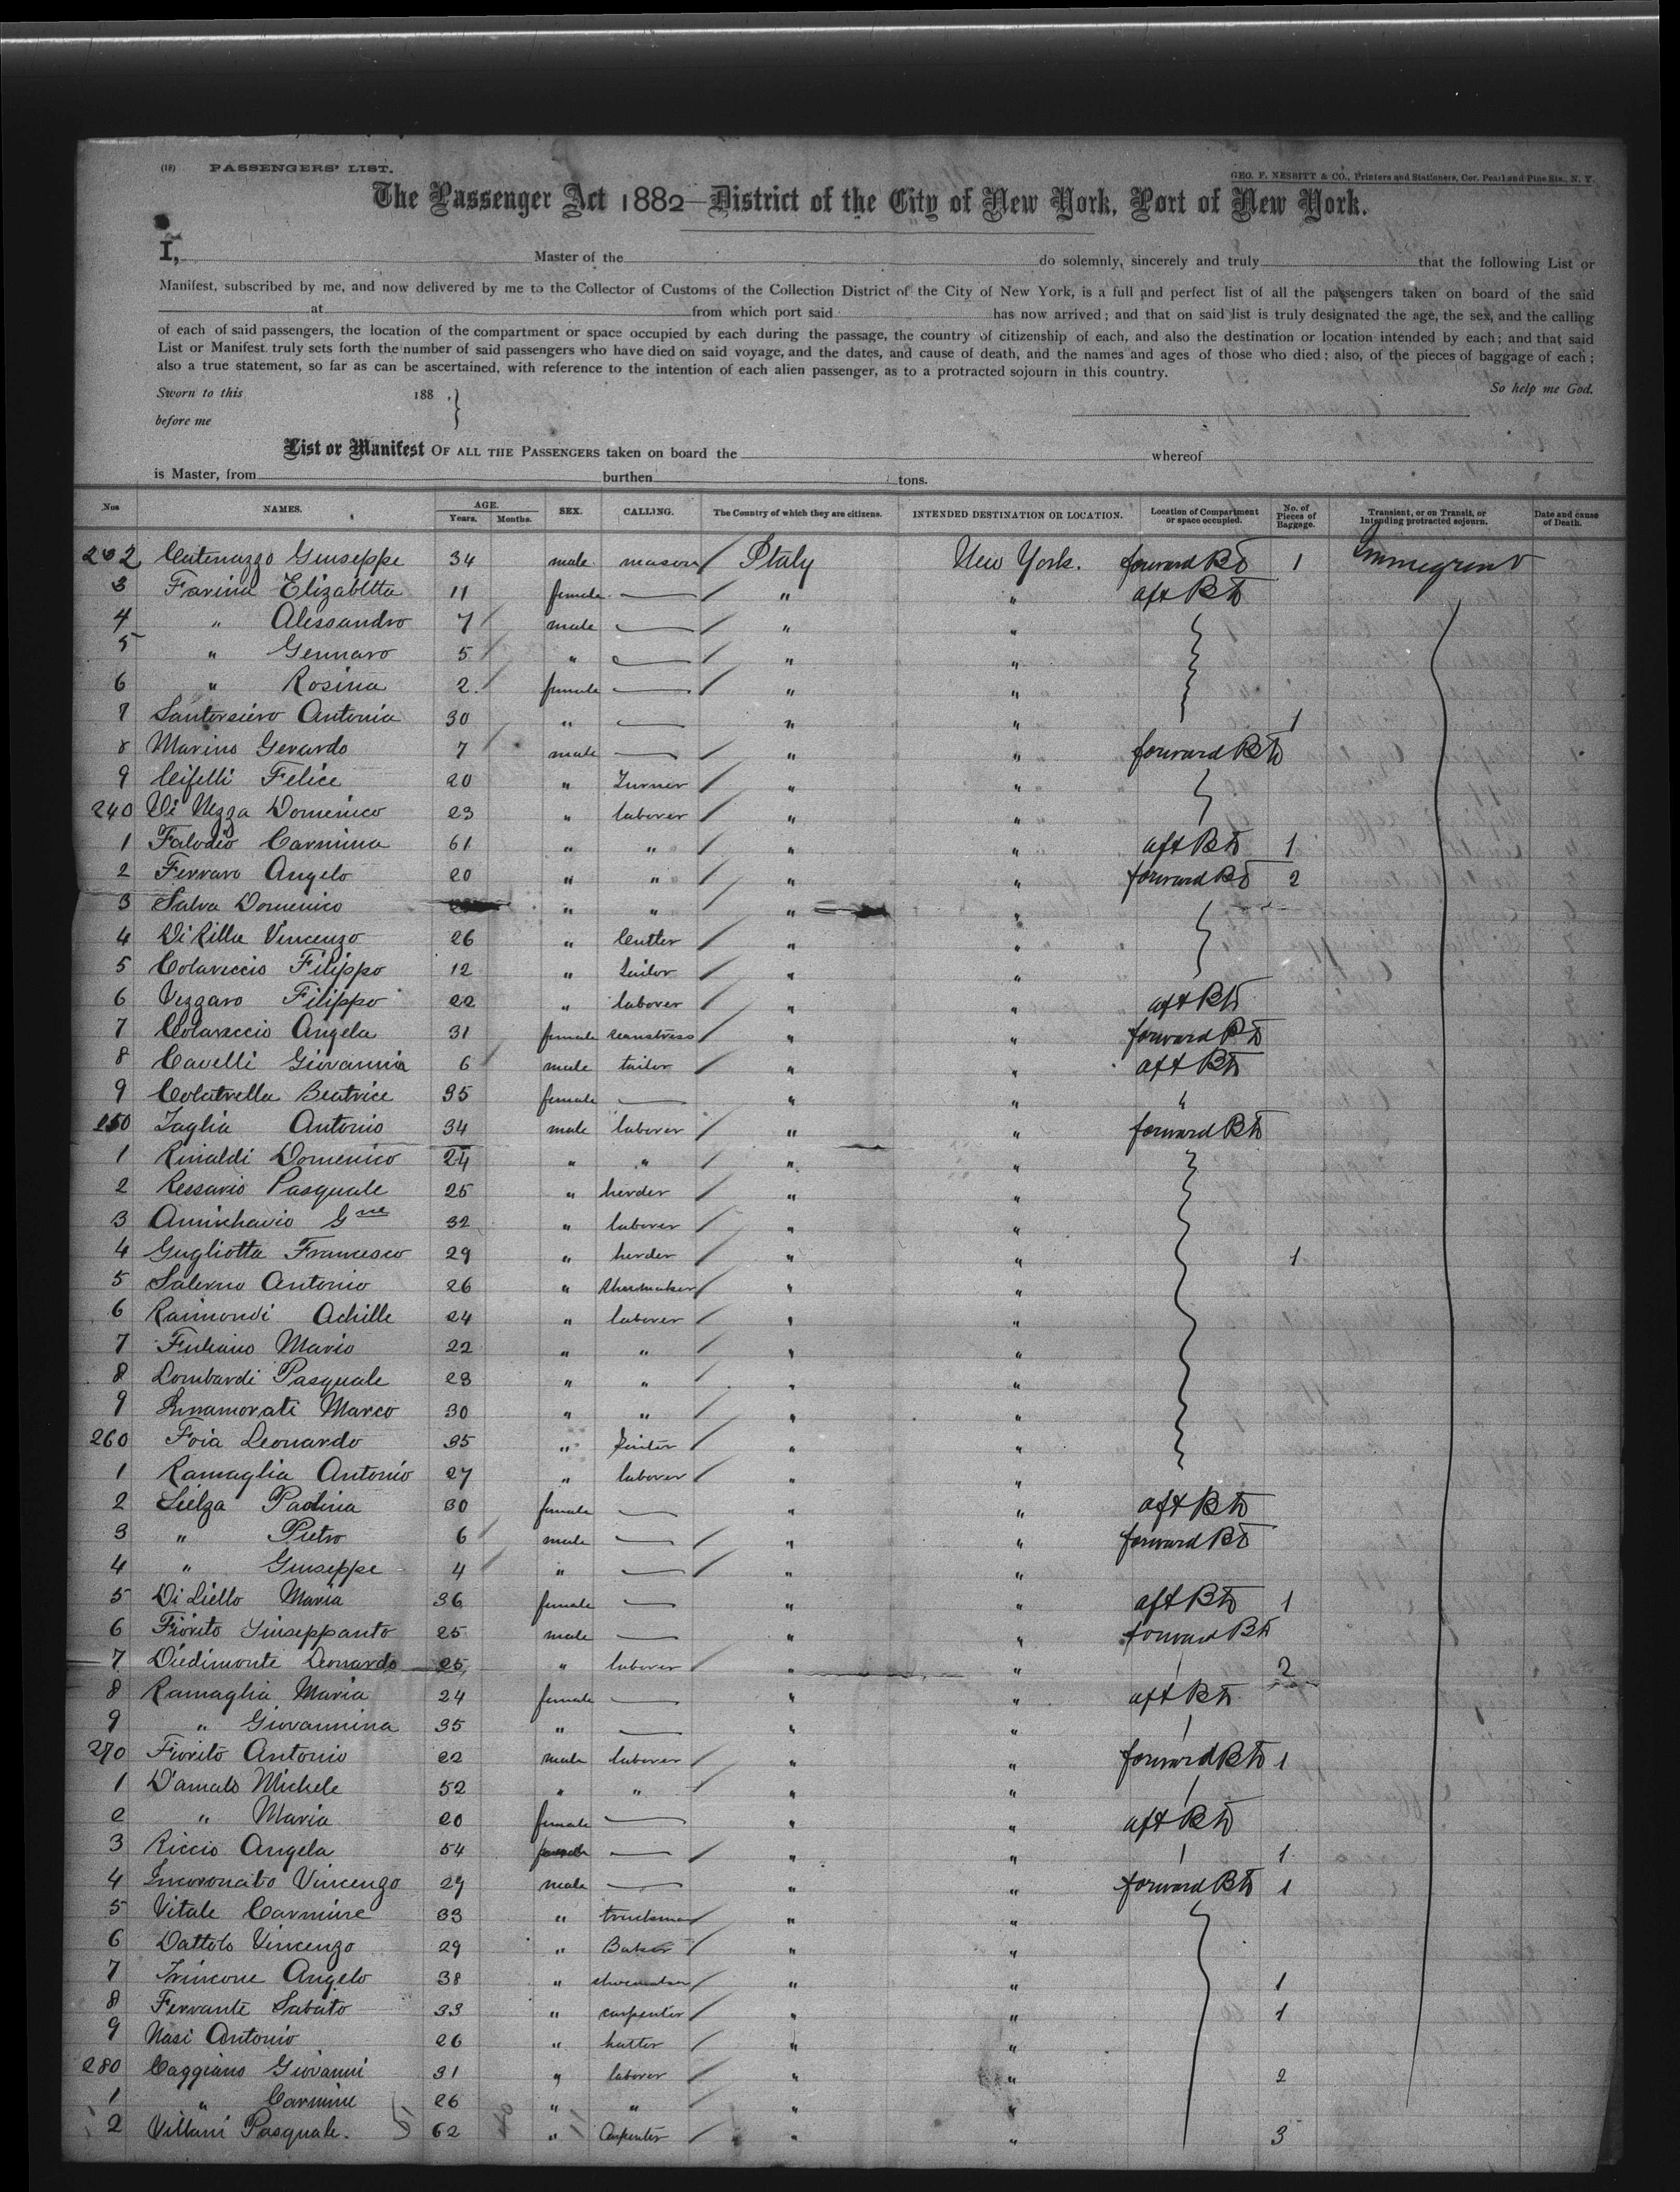 (18) PASSENGERS' LIST.
GEO. F. NESBITT & CO., Printers and Stationers, Cor. Pearl and Pine Sts., N. Y.
The Passenger Act 1882—District of the City of New York, Port of New York.
I, Master of the do solemnly, sincerely and truly that the following List or
Manifest, subscribed by me, and now delivered by me to the Collector of Customs of the Collection District of the City of New York, is a full and perfect list of all the passengers taken on board of the said
at from which port said has now arrived; and that on said list is truly designated the age, the sex, and the calling
of each of said passengers, the location of the compartment or space occupied by each during the passage, the country of citizenship of each, and also the destination or location intended by each; and that said
List or Manifest truly sets forth the number of said passengers who have died on said voyage, and the dates, and cause of death, and the names and ages of those who died; also, of the pieces of baggage of each;
also a true statement, so far as can be ascertained, with reference to the intention of each alien passenger, as to a protracted sojourn in this country.
So help me God.
Sworn to this 188 .
before me
List or Manifest OF ALL THE PASSENGERS taken on board the whereof
is Master, from burthen tons.
Nos NAMES. AGE. Years. Months. SEX. CALLING. The Country of which they are citizens. INTENDED DESTINATION OR LOCATION. Location of Compartment or space occupied. No. of Pieces of Baggage. Transient, or on Transit, or Intending protracted sojourn. Date and cause of Death.
232 Catenazzo Giuseppe 34 male mason Italy New York. forward 1
3 Farina Elizabetta 11 female — " " aft
4 " Alessandro 7 male — " "
5 " Gennaro 5 " — " "
6 " Rosina 2 female — " "
7 Santorsiero Antonia 30 " — " " 1
8 Marino Gerardo 7 male — " " forward
9 Cifelli Felice 20 " Turner " "
240 Di Nezza Domenico 23 " laborer " "
1 Falodio Carmina 61 " " " " aft 1
2 Ferraro Angelo 20 " " " " forward 2
3 Salva Domenico " " " "
4 Di Rilla Vincenzo 26 " Cutter " "
5 Colaneccio Filippo 12 " tailor " "
6 Vezzaro Filippo 22 " laborer " " aft
7 Colaneccio Angela 31 female seamstress " " forward
8 Cavelli Giovannia 6 male tailor " " aft
9 Colatrella Beatrice 35 female — " " "
250 Taglia Antonio 34 male laborer " " forward
1 Rinaldi Domenico 24 " " " "
2 Ressario Pasquale 25 " herder " "
3 Gne 32 " laborer " "
4 Gugliotta Francesco 29 " herder " " 1
5 Salerno Antonio 26 " shoemaker " "
6 Raimondi Achille 24 " laborer " "
7 Fuliano Mario 22 " " " "
8 Lombardi Pasquale 23 " " " "
9 Innamorati Marco 30 " " " "
260 Foia Leonardo 35 " " "
1 Ramaglia Antonio 27 " laborer " "
2 Sielza Paolina 30 female — " " aft
3 " Pietro 6 male — " " forward
4 " Giuseppe 4 " — " "
5 Di Liello Maria 36 female — " " aft 1
6 Fiorito Giuseppanto 25 male — " " forward
7 Diedimonte Leonardo 25 " laborer " " 2
8 Ramaglia Maria 24 female — " " aft
9 " Giovannina 35 " — " "
270 Fiorito Antonio 22 male laborer " " forward 1
1 D'amato Michele 52 " " " "
2 " Maria 20 female — " " aft
3 Riccio Angela 54 female — " " 1
4 Incoronato Vincenzo 29 male — " " forward 1
5 Vitale Carmine 33 " truckman " "
6 Dattolo Vincenzo 29 " Baker " "
7 Trincone Angelo 38 " shoemaker " " 1
8 Ferrante Sabato 33 " carpenter " " 1
9 Nasi Antonio 26 " hatter " "
280 Caggiano Giovanni 31 " laborer " " 2
1 " Carmine 26 " " " "
2 Villani Pasquale. 62 " Carpenter " " 3